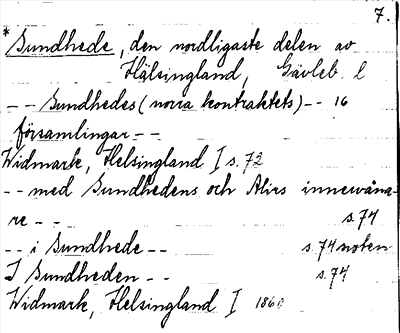 7.
* Sundhede, den nordligaste delen av
Hälsingland, Gävleb. l
-- Sundhedes (norra kontraktets) -- 16
församlingar --
Widmark, Helsingland I s. 72
-- med Sundhedens och Alirs innevåna-
re -- s. 74
-- i Sundhede -- s. 74 noten
I Sundheden -- s. 74
Widmark, Helsingland I 1860